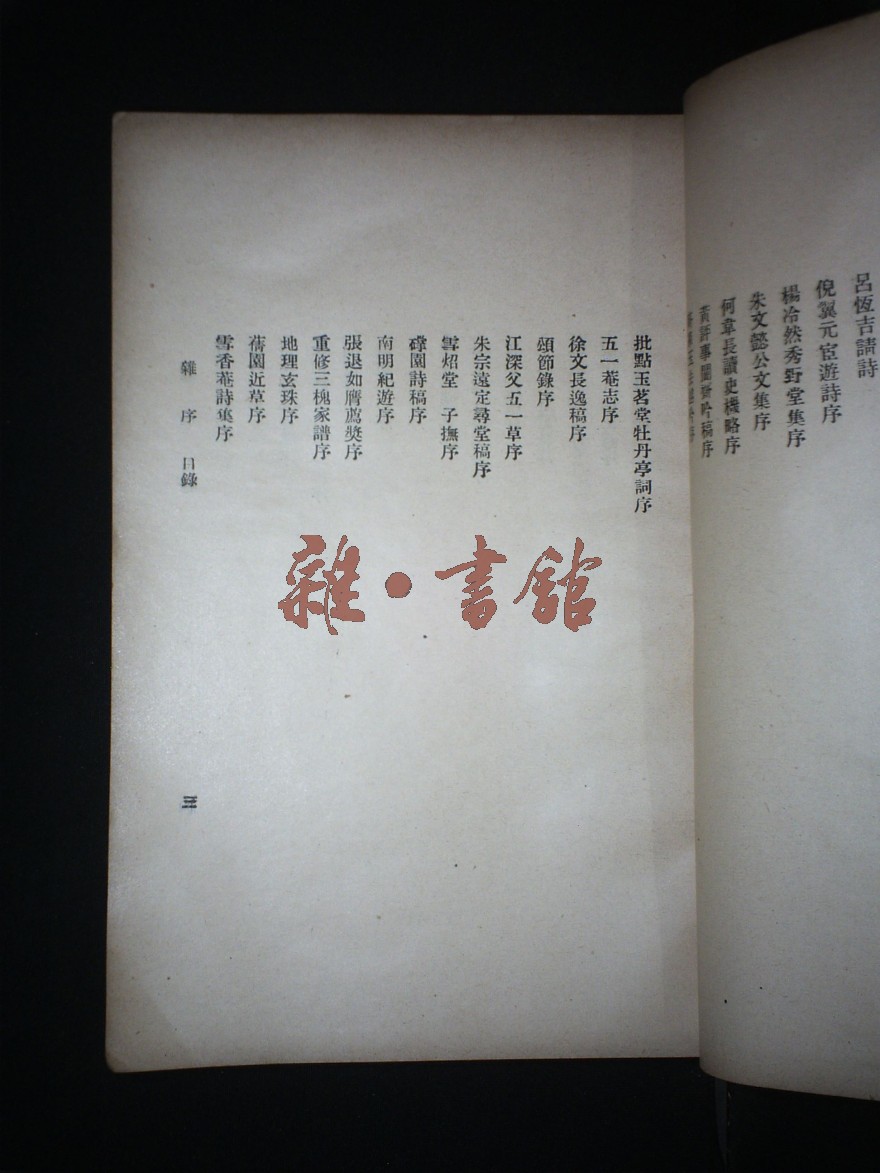 呂恆吉請詩
倪翼元宦遊詩序
楊冷然秀野堂集序
朱文懿公文集序
何韋長讀史機略序
批點玉茗堂牡丹亭詞序
五一菴志序
徐文長逸稿序
頌節錄序
江深父五一草序
朱宗遠定尋堂稿序
雪炤堂 子撫序
磊園詩稿序
南明紀遊序
張退如膺薦獎序
重修三槐家譜序
地理玄珠序
蓓園近草序
雪香菴詩集序
雜 序 目錄
三
雜·書館